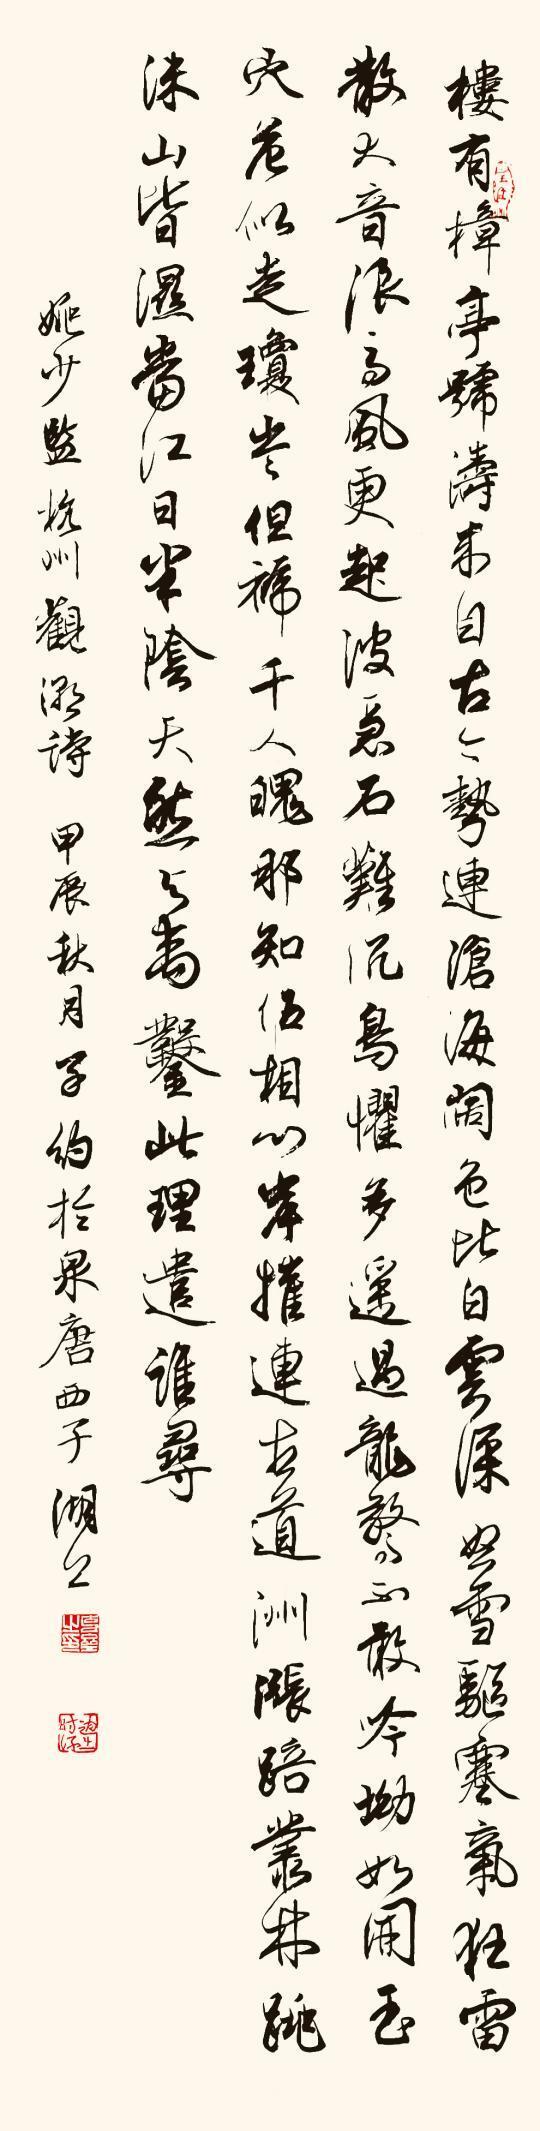 樓有樟亭號濤來自古今勢連滄海闊色比白雲深怒雪驅寒氣狂雷
散大音浪高風更起波急石難沉鳥懼多遥過龍驚不敢吟坳如開玉
穴危似走瓊岑但褫千人魄那知伍相心岸摧連古道洲漲踣叢林跳
沫山皆濕當江日半陰天然與禹鑿此理遣誰尋
姚少監杭州觀潮詩 甲辰秋月子約於泉唐西子湖上